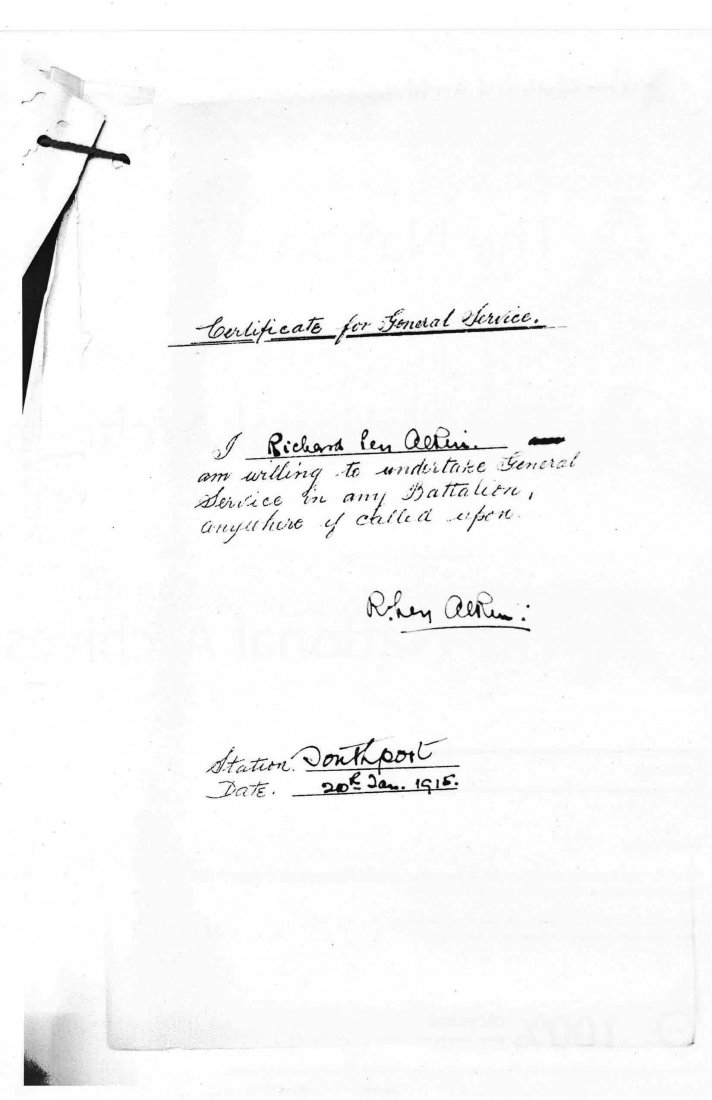 Certificate for General Service.
I Richard Ley Atkin.
am willing to undertake General
Service in any Battalion,
anywhere if called upon.
R. Ley Atkin:
Station. Southport
Date. 20th Jan. 1915.